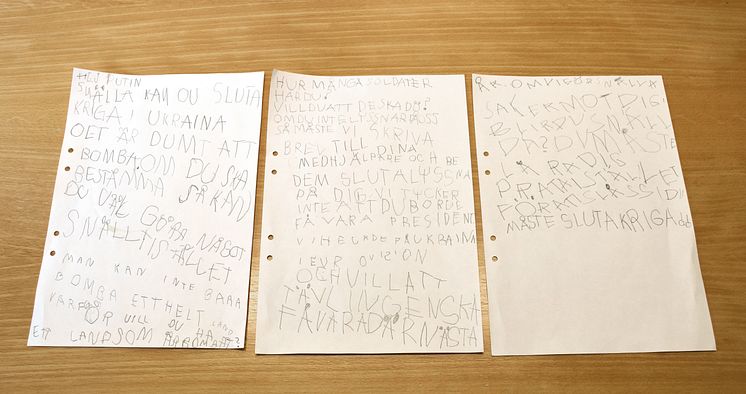 HEJ PUTIN
SNÄLLA KAN DU SLUTA
KRIGA I UKRAINA
DET ÄR DUMT ATT
BOMBA. OM DU SKA
BESTÄMMA SÅ KAN
DU VÄL GÖRA NÅGOT
SNÄLLT ISTÄLLET
MAN KAN INTE BARA
BOMBA ETT HELT LAND
VARFÖR VILL DU HA
ETT LAND SOM ÄR
HUR MÅNGA SOLDATER
HAR DU?
VILL DU ATT DE SKA DÖ?
OM DU INTE LYSNAR PÅ OSS
SÅ MÅSTE VI SKRIVA
BREV TILL DINA
MEDHJÄLPARE OCH BE
DEM SLUTA LYSSNA
PÅ DIG. VI TYCKER
INTE ATT DU BORDE
FÅ VARA PRESIDENT
VI HEJADE PÅ UKRAINA
I EUROVISION
OCH VILL ATT
TÄVLINGEN SKA
FÅ VARA DÄR NÄSTA
OM VI GÖR SNÄLLA
SAKER MOT DIG
BLIR DU SNÄLL
DÅ? DU MÅSTE
LÄRA DIG
PRATA ISTÄLLET
FÖR ATT SLÅSS. DU
MÅSTE SLUTA KRIGA